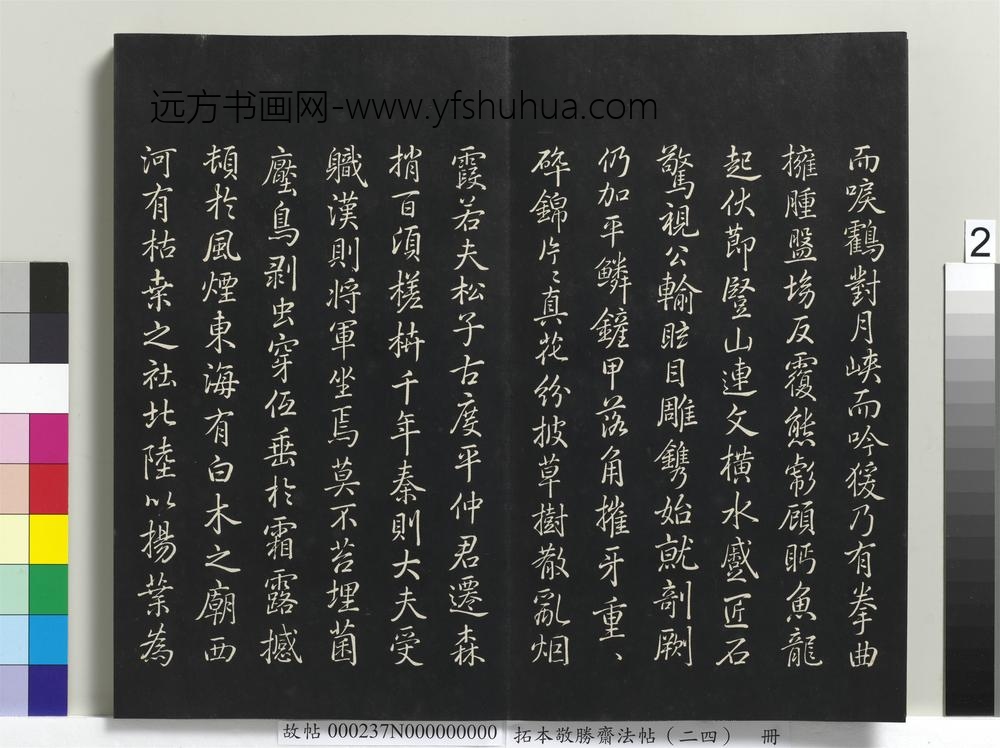 远方书画网-www.yfshuhua.com
而唳鶴對月峽而吟猨乃有拳曲
擁腫盤坳反覆熊彪顧眄魚龍
起伏莭豎山連文橫水慼匠石
驚視公輸眩目雕鐫始就剞劂
仍加平鱗鏟甲落角摧牙重、
碎錦片、真花紛披草樹散亂烟
霞若夫松子古度平仲君遷森
捎百頃槎枿千年秦則大夫受
軄漢則將軍坐焉莫不苔埋菌
壓鳥剥虫穿伍垂於霜露撼
頓於風煙東海有白木之廟西
河有枯桒之社北陸以揚葉為
2
故帖 000237N000000000 拓本敬勝齋法帖（二四） 冊